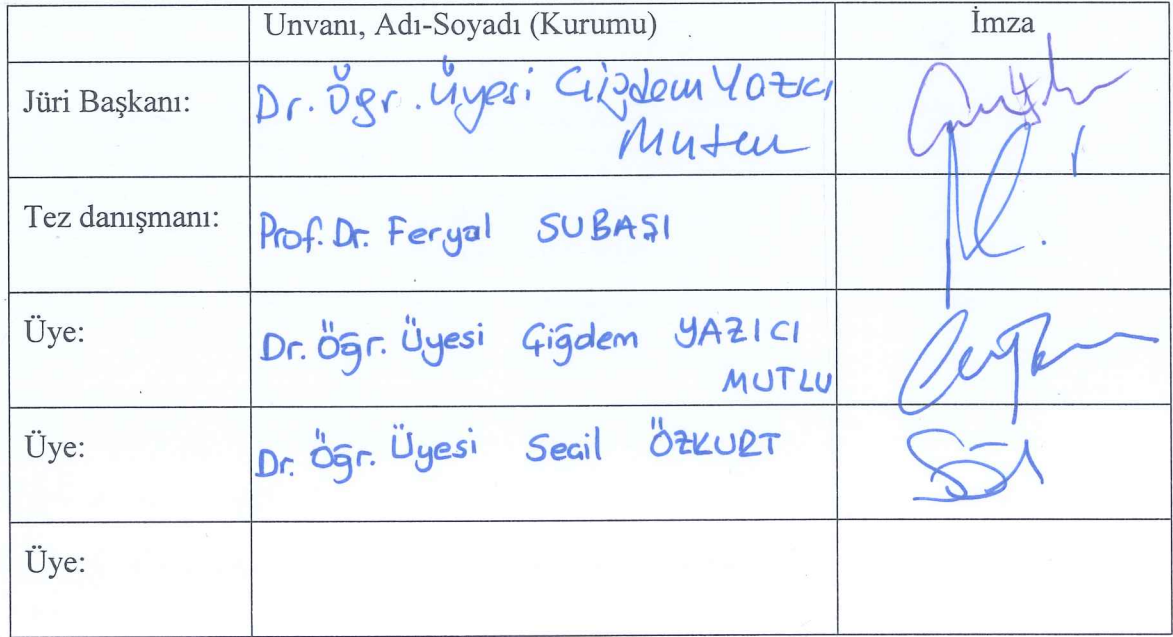 Unvanı, Adı-Soyadı (Kurumu) İmza
Jüri Başkanı: Dr. Öğr. Üyesi Çiğdem Yazıcı
Mutlu
Tez danışmanı: Prof. Dr. Feryal SUBAŞI
Üye: Dr. Öğr. Üyesi Çiğdem YAZICI
MUTLU
Üye: Dr. Öğr. Üyesi Seçil ÖZKURT
Üye: